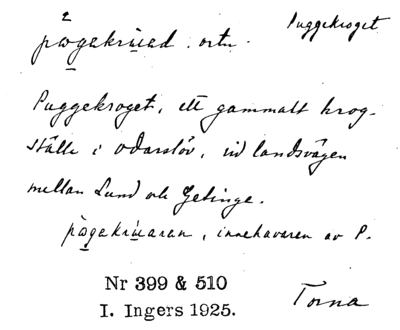 Puggekroget
2
pøgakruad. ortn.
Puggekroget, ett gammalt krog-
ställe i Odarslöv, vid landsvägen
mellan Lund och Getinge.
pøgakruaran, innehavaren av P.
Nr 399 & 510
I. Ingers 1925.
Torna